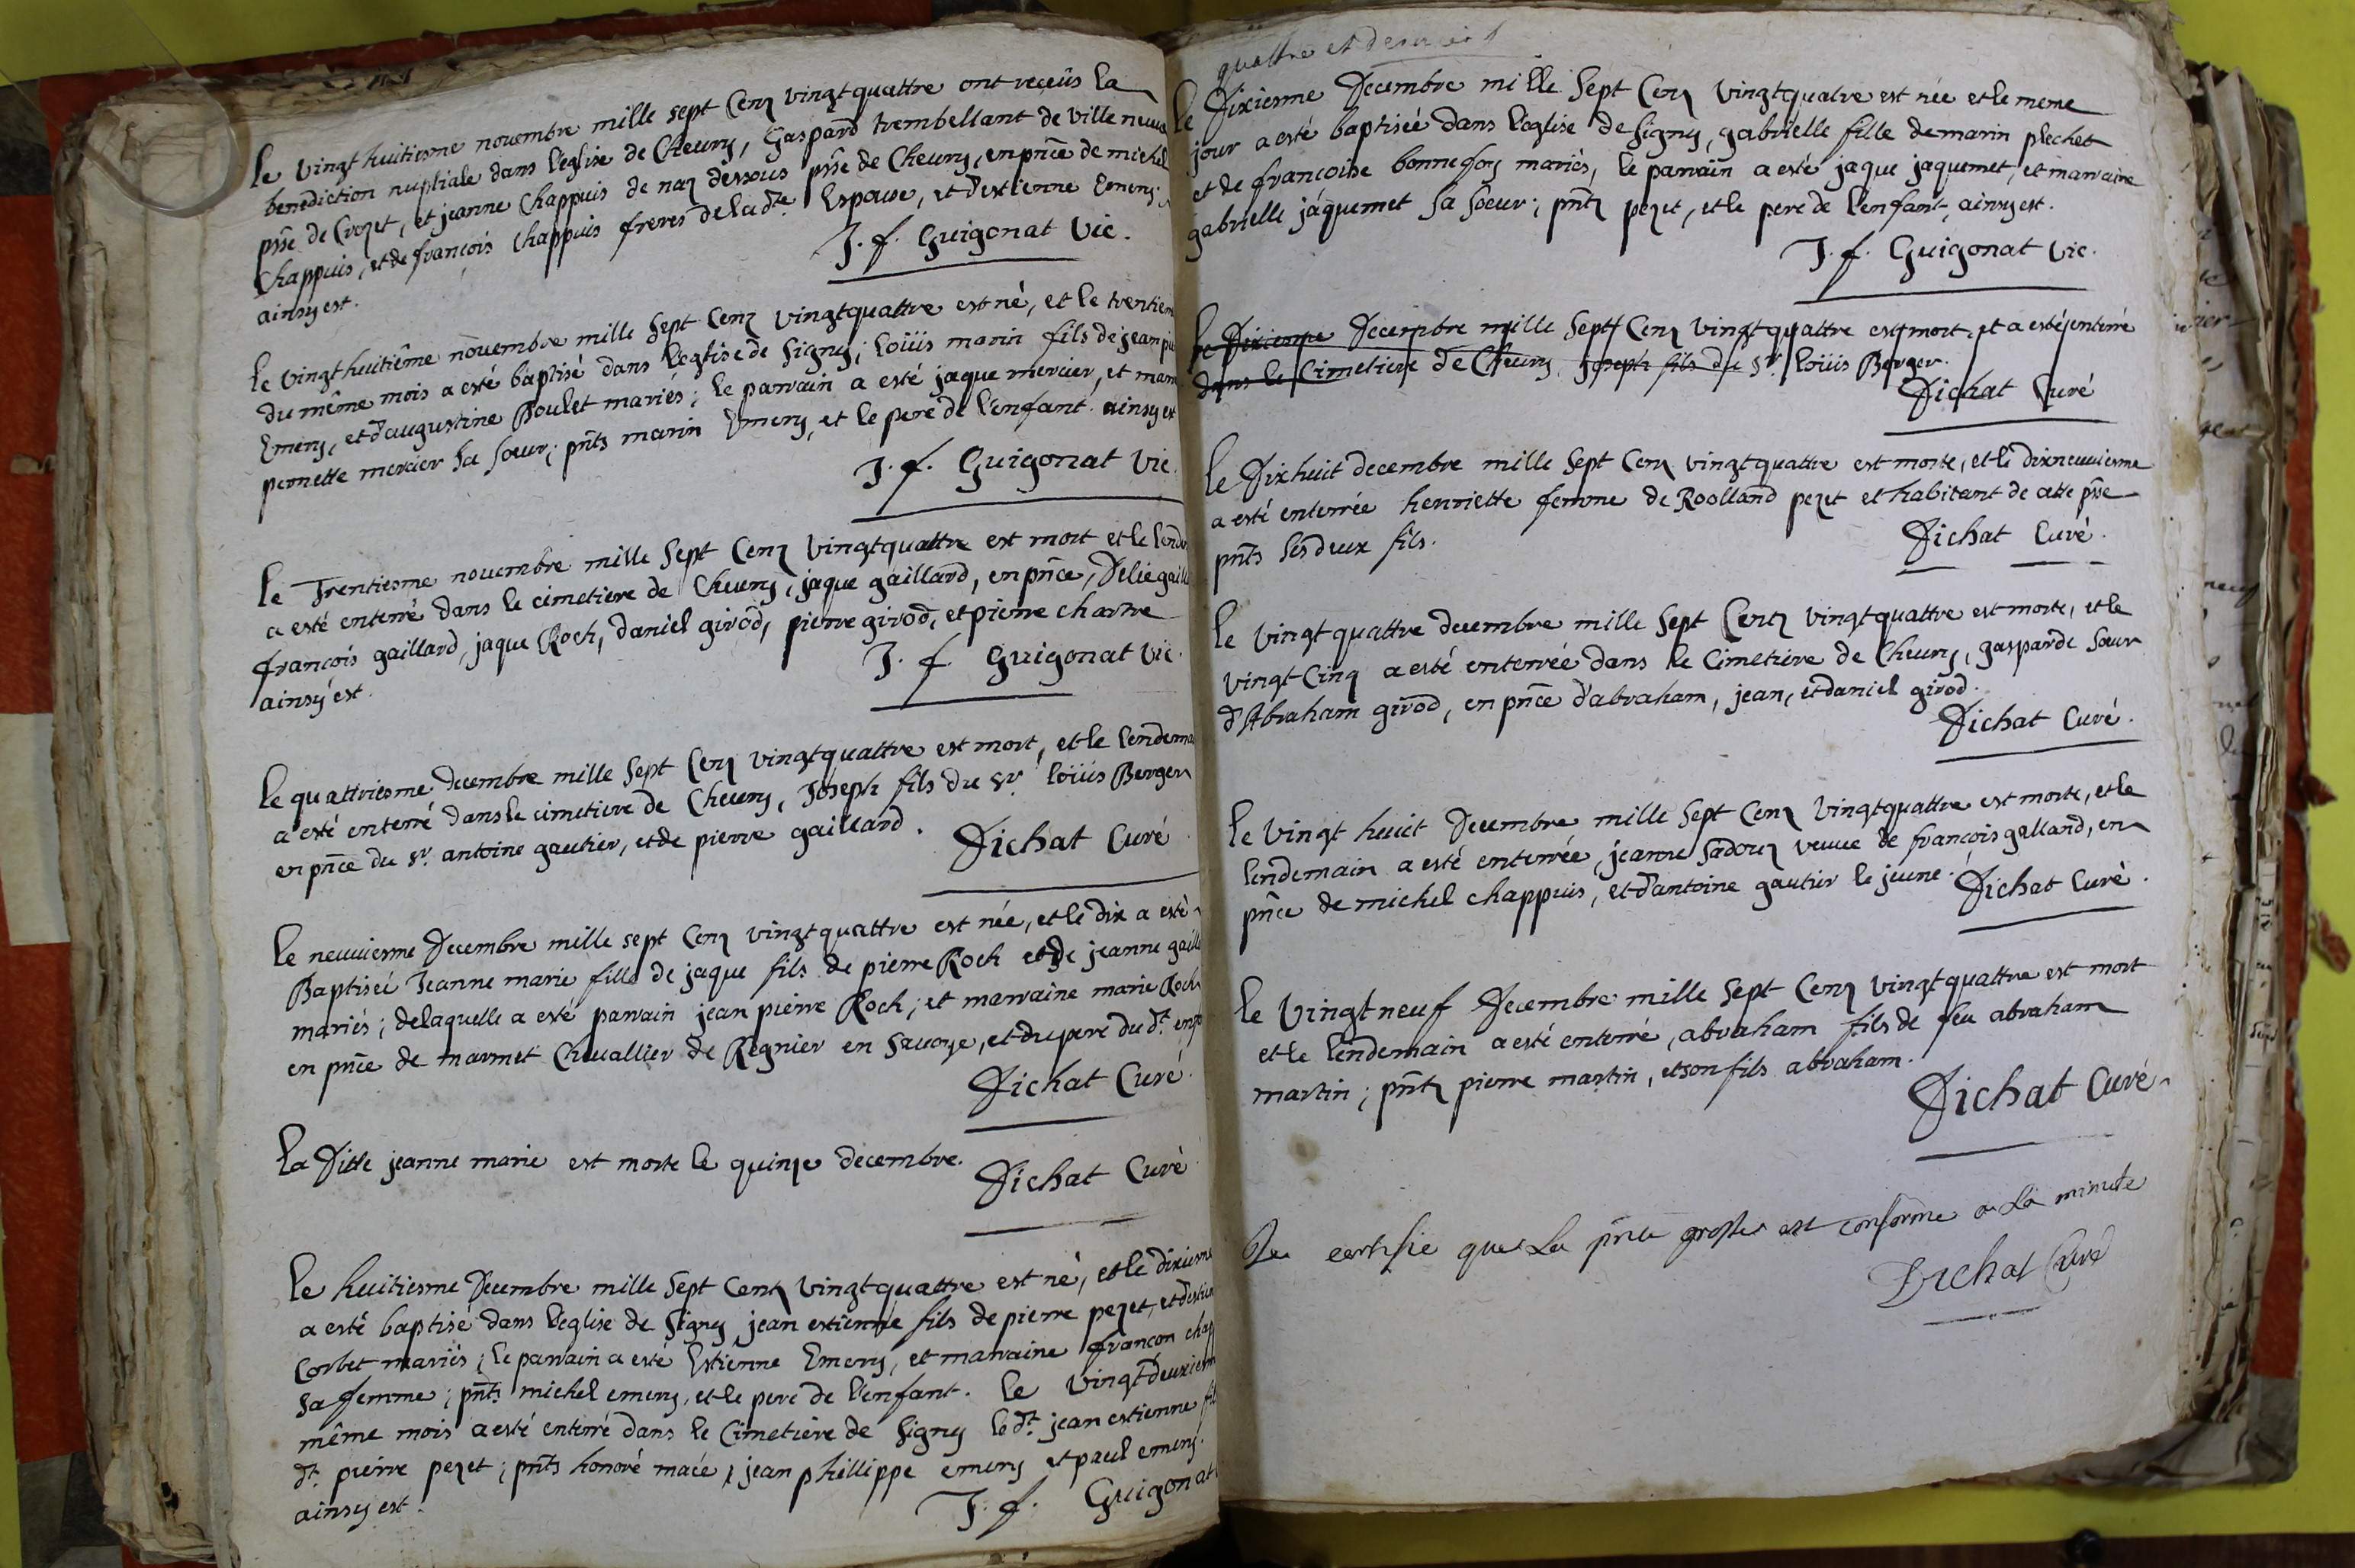 le vingthuitiesme novembre mille sept Cenz vingtquattre ont reçeüs la
benediction nuptiale dans l'église de Cheury, Gaspard trembellant de ville neuve
psse de Crozet, et jeanne Chappuis de naz dessous psse de Cheury, en pnce de michel
Chappuis, et de françois Chappuis freres de la dte Espouse, et d'estienne Emery.
ainsy est.
J. f. Guigonat Vic.
le vingthuitiême novembre mille Sept Cenz vingtquattre est né, et le trentiem
du même mois a esté baptisé dans l'eglise de Signy; Loüis marin fils de jean
Emery, et d'augustine Poulet mariés; le parrain a esté jaque mercier, et marr
pernette mercier sa soeur; pnts marin Emery, et le pere de l'enfant. ainsy est
J. f. Guigonat Vic.
le Trentiesme novembre mille Sept Cenz vingtquattre est mort et le lend
a esté enterré dans le cimetiere de Cheury, jaque gaillard, en pnce, D'elie gaill
françois gaillard, jaque Roch, daniel girod, pierre girod, et pierre chartre
ainsy est.
J. f. Guigonat Vic.
le quattriesme decembre mille Sept Cenz vingtquattre est mort, et le lendema
a esté enterré dans le cimetiere de Cheury, Joseph fils du Sr. Loüis Berger
en pnce du Sr. antoine gautier, et de pierre gaillard.
Dichat Curé
le neuuiesme Decembre mille sept Cenz vingtquattre est née, et le dix a esté
Baptiseé Jeanne marie fille de jaque fils de pierre Roch et de jeanne gaill
mariés; de laquelle a esté parrain jean pierre Roch; et marraine marie Roch
en pnce de marmet Chevallier de Regnier en Savoye, et du pere du dt. enf
Dichat Curé
La Ditte jeanne marie est morte le quinze decembre.
Dichat Curé
le huitiesme Decembre mille Sept Centz vingtquattre est né, et le dixiesme
a esté baptisé dans l'eglise de Signy jean estienne fils de pierre pezet, et d'esti
Corbet mariés; le parrain a esté Estienne Emery, et marraine françon chap
Sa femme; pnts michel emery, et le pere de l'enfant. le vingtdeuxiesm
même mois a esté enterré dans le Cimetiere de Signy le dt. jean estienne fil
dt. pierre pezet; pnts honoré macé, jean phillippe emery et paul emery.
ainsy est.
J. f. Guigonat
quattre et dernier
le Dixiesme Decembre mille Sept Cenz vingtquatre est née et le meme
jour a esté baptiseé dans l'eglise de Signy, gabrielle fille de marin plechet
et de françoise bonnefoy mariés, le parrain a esté jaque jaquemet, et marraine
gabrielle jaquemet sa soeur; pntz pezet, et le pere de l'enfant, ainsy est.
J. f. Guigonat Vic.
le Dixiesme Decembre mille Sept Cenz vingtquattre est mort, et a esté enterré
dans le Cimetiere de Cheury, Joseph fils du Sr. Loüis Berger.
Dichat Curé
le Dixhuit decembre mille Sept Cenz vingtquattre est morte, et le dixneuuiesme
a esté enterrée henriette femme de Roolland pezet et habitant de cette psse
pnts ses deux fils.
Dichat Curé.
le vingtquattre decembre mille Sept Centz vingtquattre est morte, et le
vingt-Cinq a esté enterrée dans le Cimetiere de Cheury, gasparde Soeur
d'Abraham girod, en pnce d'abraham, jean, et daniel girod.
Dichat Curé.
le vingt huit Decembre mille Sept Cenz vingtquattre est morte, et le
lendemain a esté enterrée, jeanne Sadouz veuue de françois galland, en
pnce de michel chappuis, et d'antoine gautier le jeune.
Dichat Curé.
le vingtneuf Decembre mille Sept Cenz vingtquattre est mort
et le lendemain a esté enterré, abraham fils de feu abraham
martin; pntz pierre martin, et son fils abraham.
Dichat Curé
Je certifie que la pnte grosse est conforme a la minute
Dichat Curé